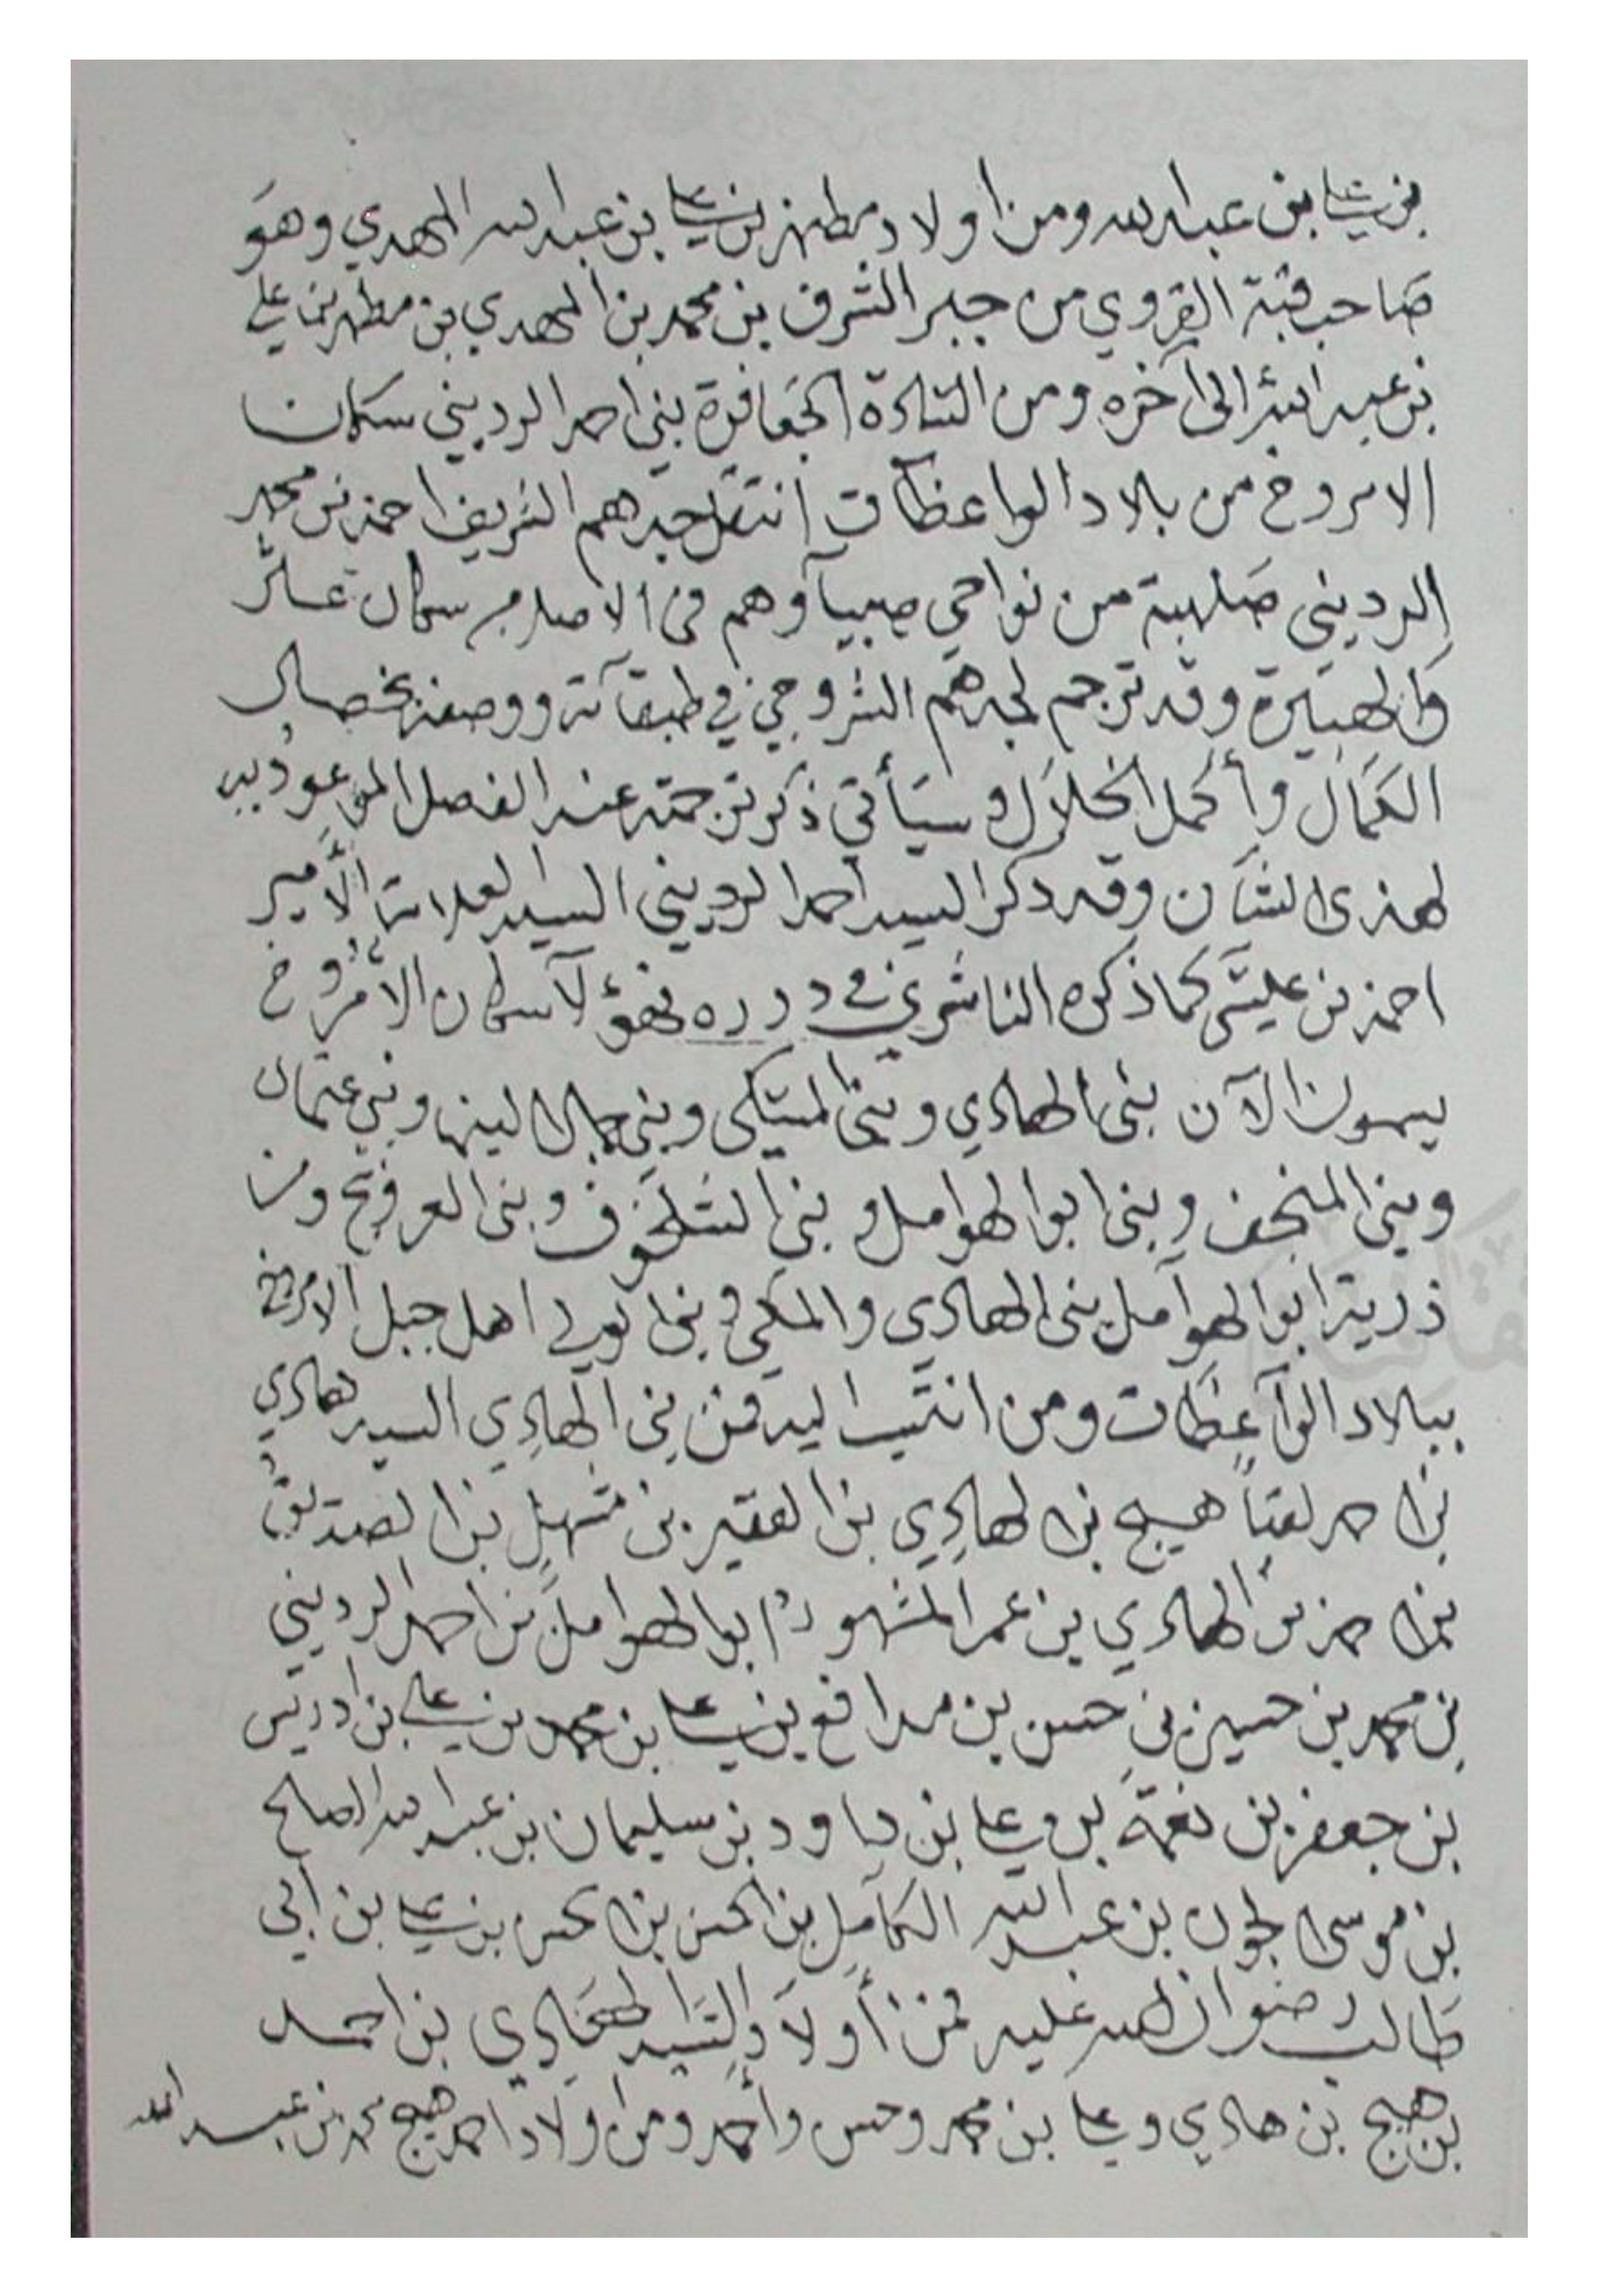 بن علي بن عبدالله ومن اولاد مطهر بن علي بن عبدالله المهدي وهو
صاحب قبة القروي من جبر الشرف بن محمد بن المهدي بن مطهر بن علي
بن عبدالله الى آخره ومن السادة الجعافرة بني احمد الرديني سكان
الامروخ من بلاد الواعظات انتقل جدهم الشريف احمد بن محمد
الرديني صلهبة من نواحي صبيا وهم فى الاصل سكان
وقد ترجم لجدهم الشروجي في طبقاته ووصفه بخصال
الكمال وأكمل الخلال وسيأتي ذكر ترجمته عند الفصل الموعود به
لهذى الشأن وقد ذكر السيد احمد الرديني السيد العلامة الأمير
احمد بن كما ذكره الناشري في درره فهؤلآ سكان الأمروخ
يسمون الآن بنى الهادي وبنى المتيكى وبني وبني عثمان
وبنى المنجف وبنى ابو الهوامل وبني وبنى العروج ومن
ذرية ابو الهوامل بنى الهادي والمكي وبني اهل جبل الامروخ
ببلاد الواعظات ومن انتسب اليه فمن بني الهادي السيد هادي
بن احمد لقبا هيج بن الهادي بن الفقير بن مشهل بن الصديق
بن احمد بن الهادي بن عمر المشهور ابو الهوامل بن احمد الرديني
بن محمد بن حسين بن حسن بن مدافع بن علي بن محمد بن علي بن ادريس
بن جعفر بن نعمة بن علي بن داود بن سليمان بن عبدالله الصالح
بن موسى الجون بن عبدالله الكامل بن الحسن بن الحسن بن علي بن أبي
طالب رضوان الله عليه فمن أولاد السيد الهادي بن احمد
بن هيج بن هادي وعلي بن محمد وحسن وأحمد ومن اولاد احمد هيج محمد بن عبدالله